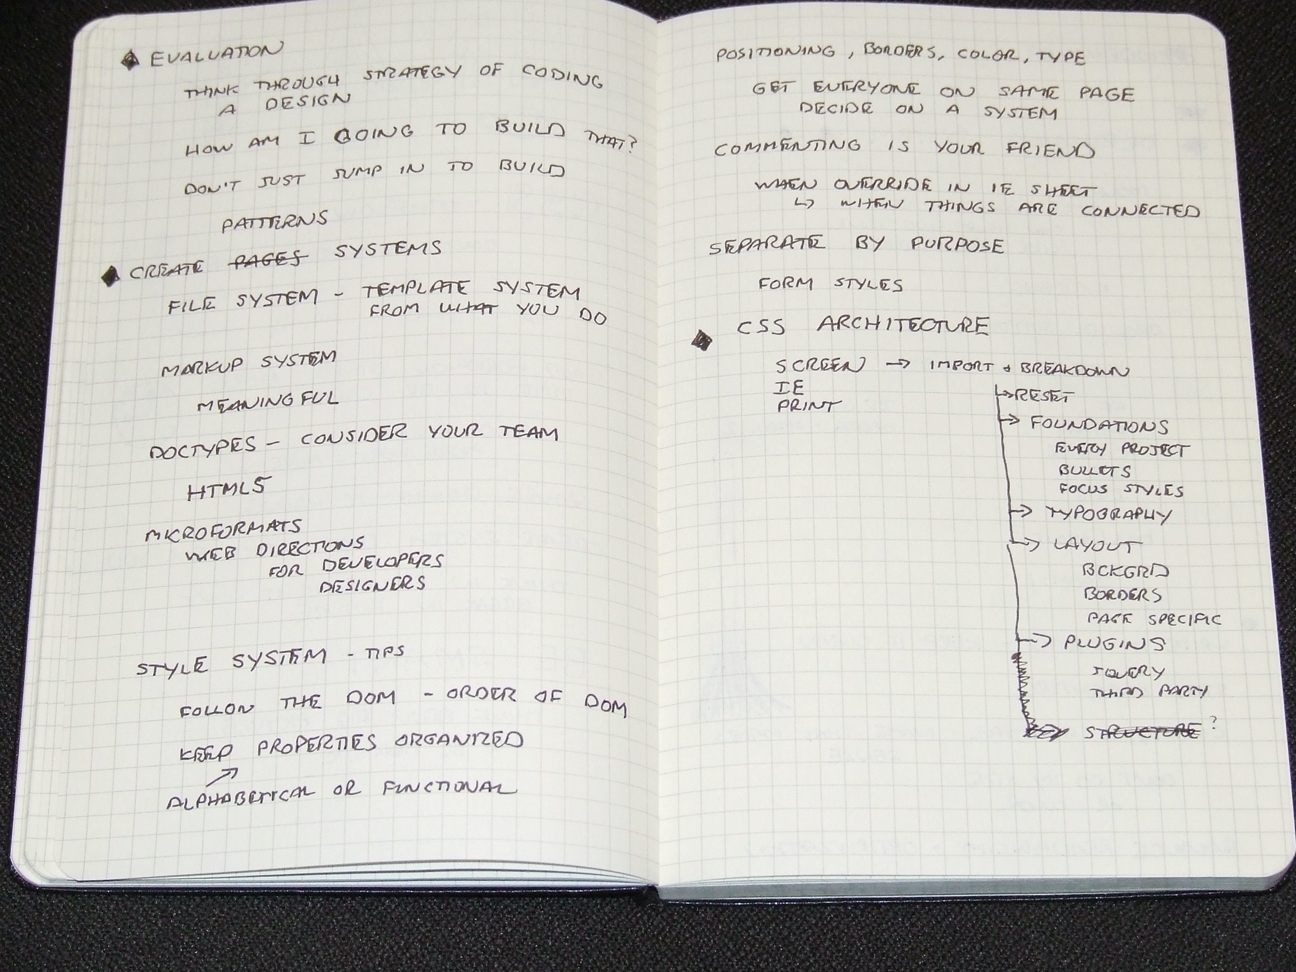 EVALUATION
THINK THROUGH STRATEGY OF CODING
A DESIGN
HOW AM I GOING TO BUILD THAT?
DON'T JUST JUMP IN TO BUILD
PATTERNS
CREATE PAGES SYSTEMS
FILE SYSTEM - TEMPLATE SYSTEM
FROM WHAT YOU DO
MARKUP SYSTEM
MEANINGFUL
DOCTYPES - CONSIDER YOUR TEAM
HTML5
MICROFORMATS
WEB DIRECTIONS
FOR DEVELOPERS
DESIGNERS
STYLE SYSTEM - TIPS
FOLLOW THE DOM - ORDER OF DOM
KEEP PROPERTIES ORGANIZED
ALPHABETICAL OR FUNCTIONAL
POSITIONING, BORDERS, COLOR, TYPE
GET EVERYONE ON SAME PAGE
DECIDE ON A SYSTEM
COMMENTING IS YOUR FRIEND
WHEN OVERRIDE IN IE SHEET
↳ WHEN THINGS ARE CONNECTED
SEPARATE BY PURPOSE
FORM STYLES
CSS ARCHITECTURE
SCREEN → IMPORT + BREAKDOWN
IE
PRINT
RESET
FOUNDATIONS
EVERY PROJECT
BULLETS
FOCUS STYLES
TYPOGRAPHY
LAYOUT
BCKGRD
BORDERS
PAGE SPECIFIC
PLUGINS
JQUERY
THIRD PARTY
STRUCTURE?